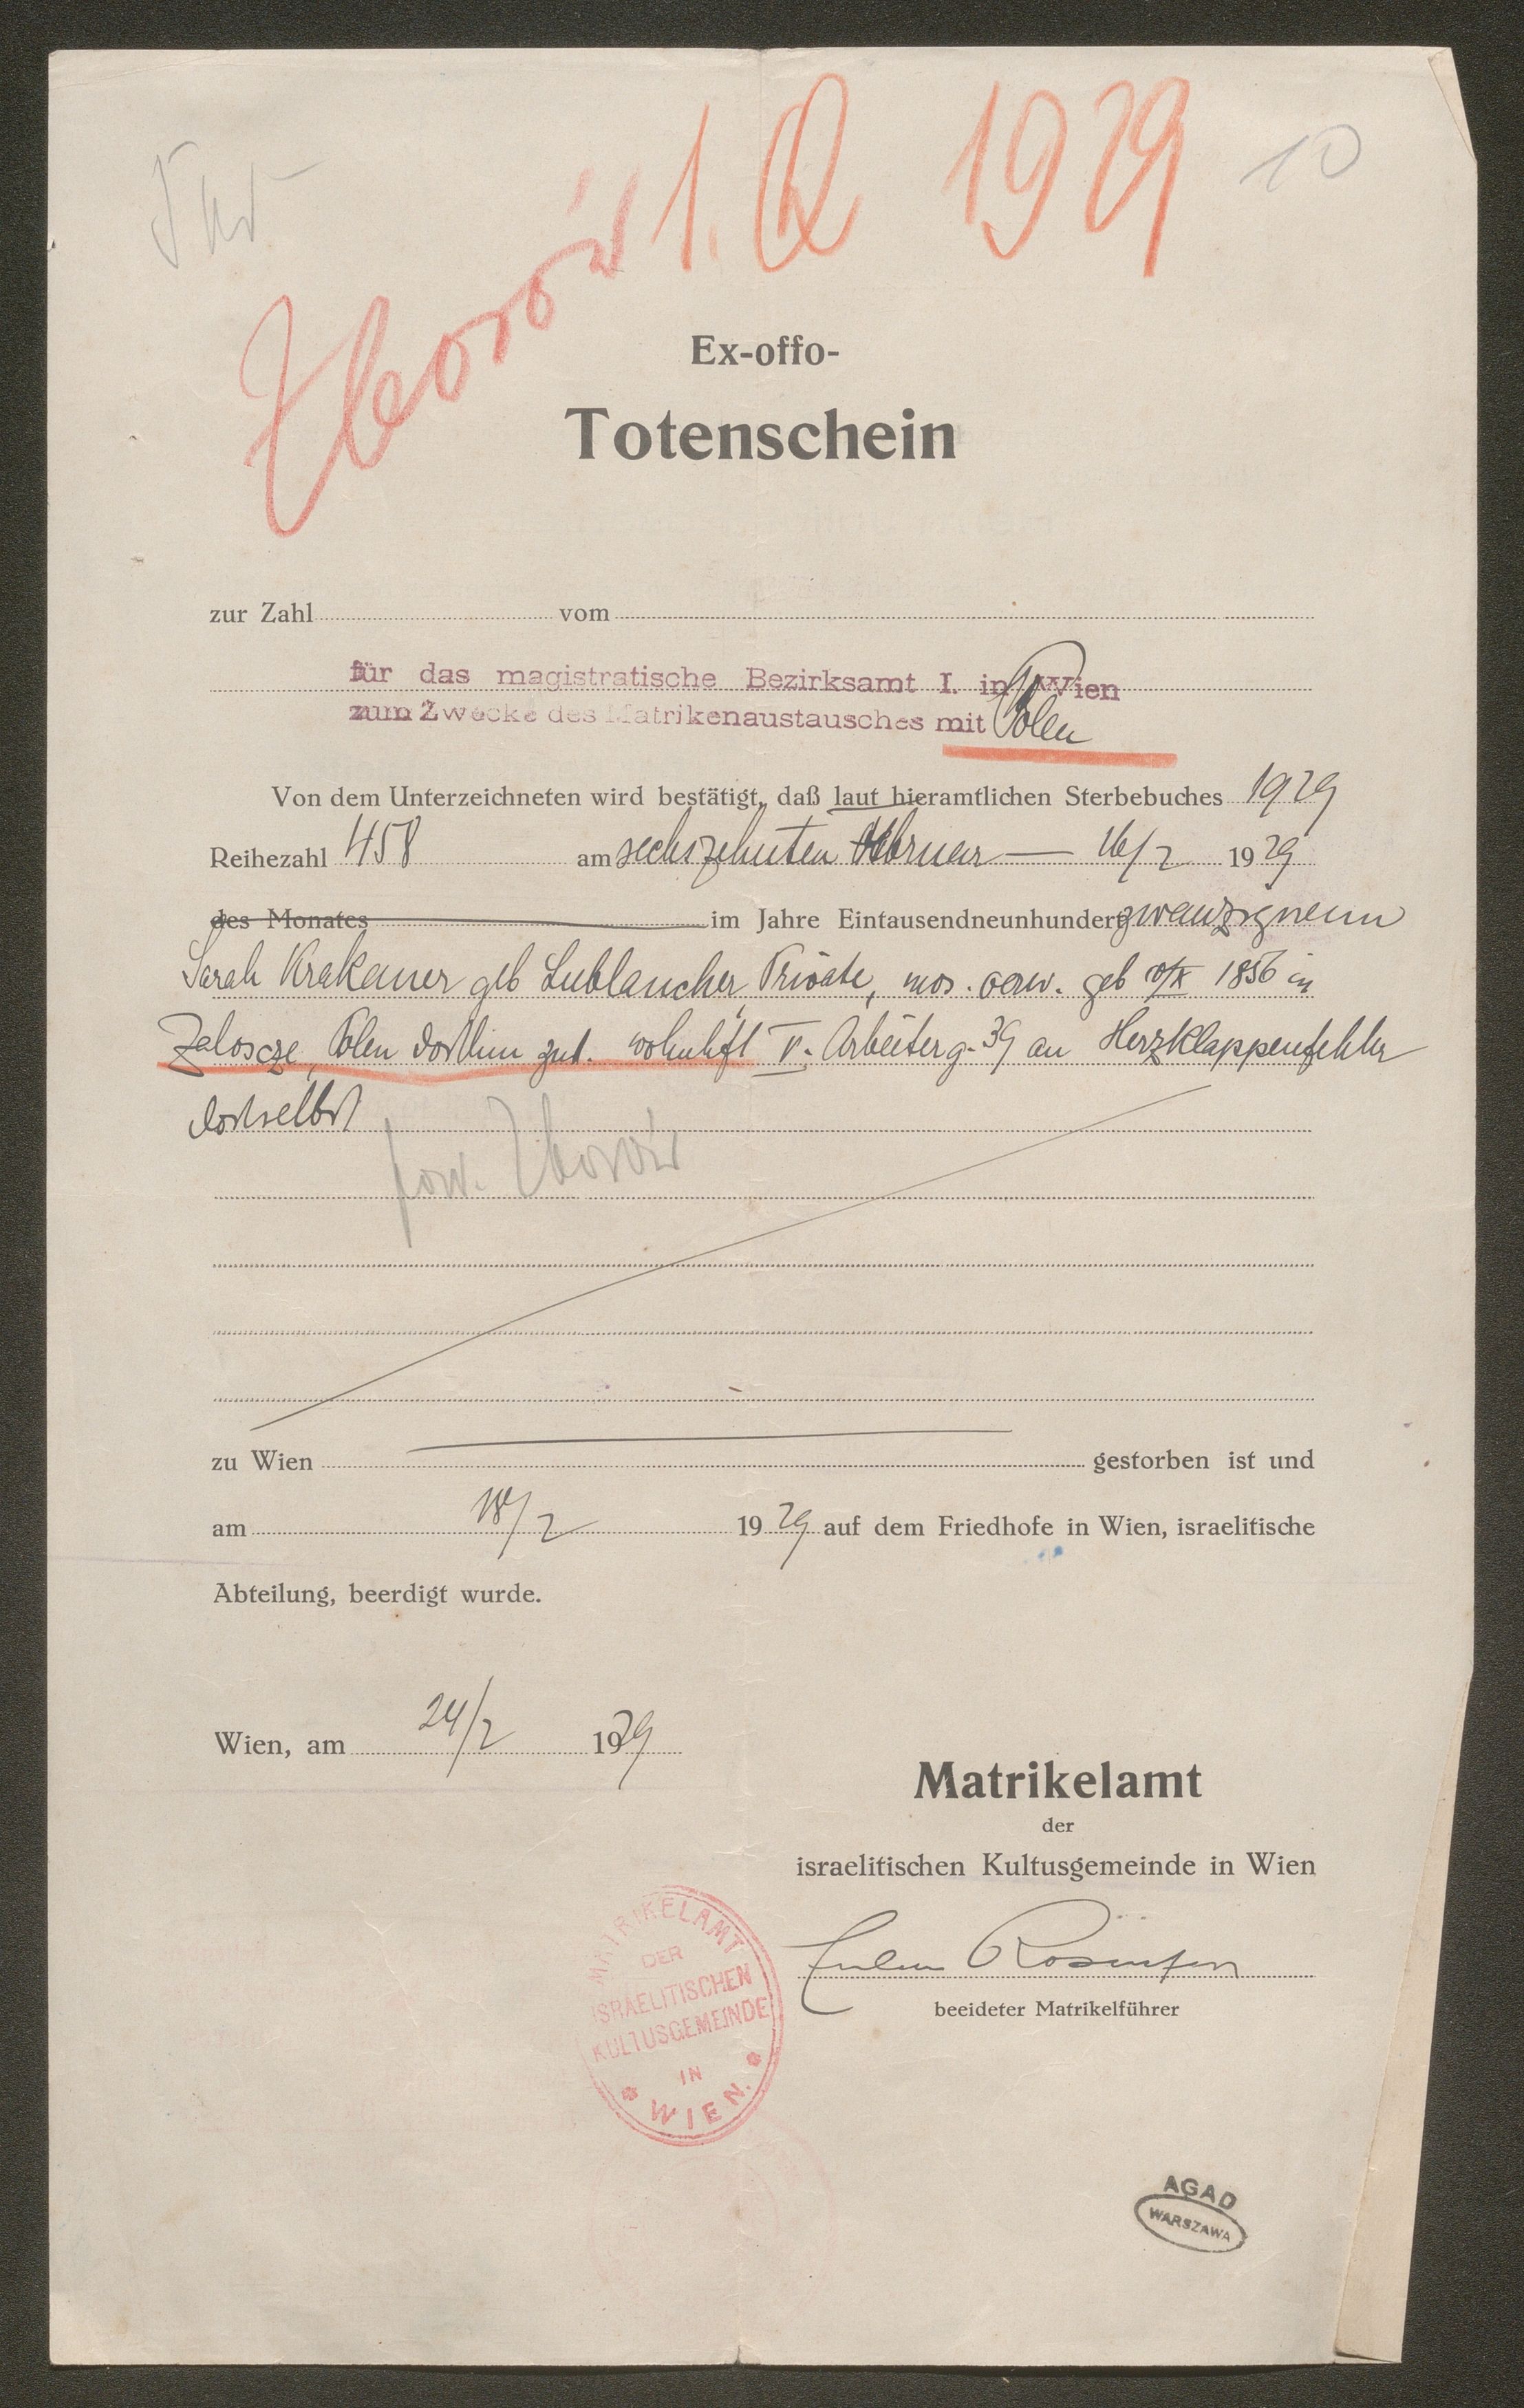 10
Zborów 1. Q 1929
Ex-offo-
Totenschein
zur Zahl vom
für das magistratische Bezirksamt I. in Wien
zum Zwecke des Matrikenaustausches mit Polen
Von dem Unterzeichneten wird bestätigt, daß laut hieramtlichen Sterbebuches 1929
Reihezahl 458 am sechszehnten Februar — 16/2 1929
des Monates im Jahre Eintausendneunhundertzwanzigneun
Sarah Krakauer geb Lublaucher, Private, mos. verw. geb 10/X 1856 in
Zalosce, Polen dorthin zust. wohnhft V. Arbeiterg. 39 an Herzklappenfehler
dortselbst
pow. Zborów
zu Wien gestorben ist und
am 18/2 1929 auf dem Friedhofe in Wien, israelitische
Abteilung, beerdigt wurde.
Wien, am 24/2 1929
Matrikelamt
der
israelitischen Kultusgemeinde in Wien
beeideter Matrikelführer
MATRIKELAMT
DER
ISRAELITISCHEN
KULTUSGEMEINDE
IN
WIEN.
AGAD
WARSZAWA